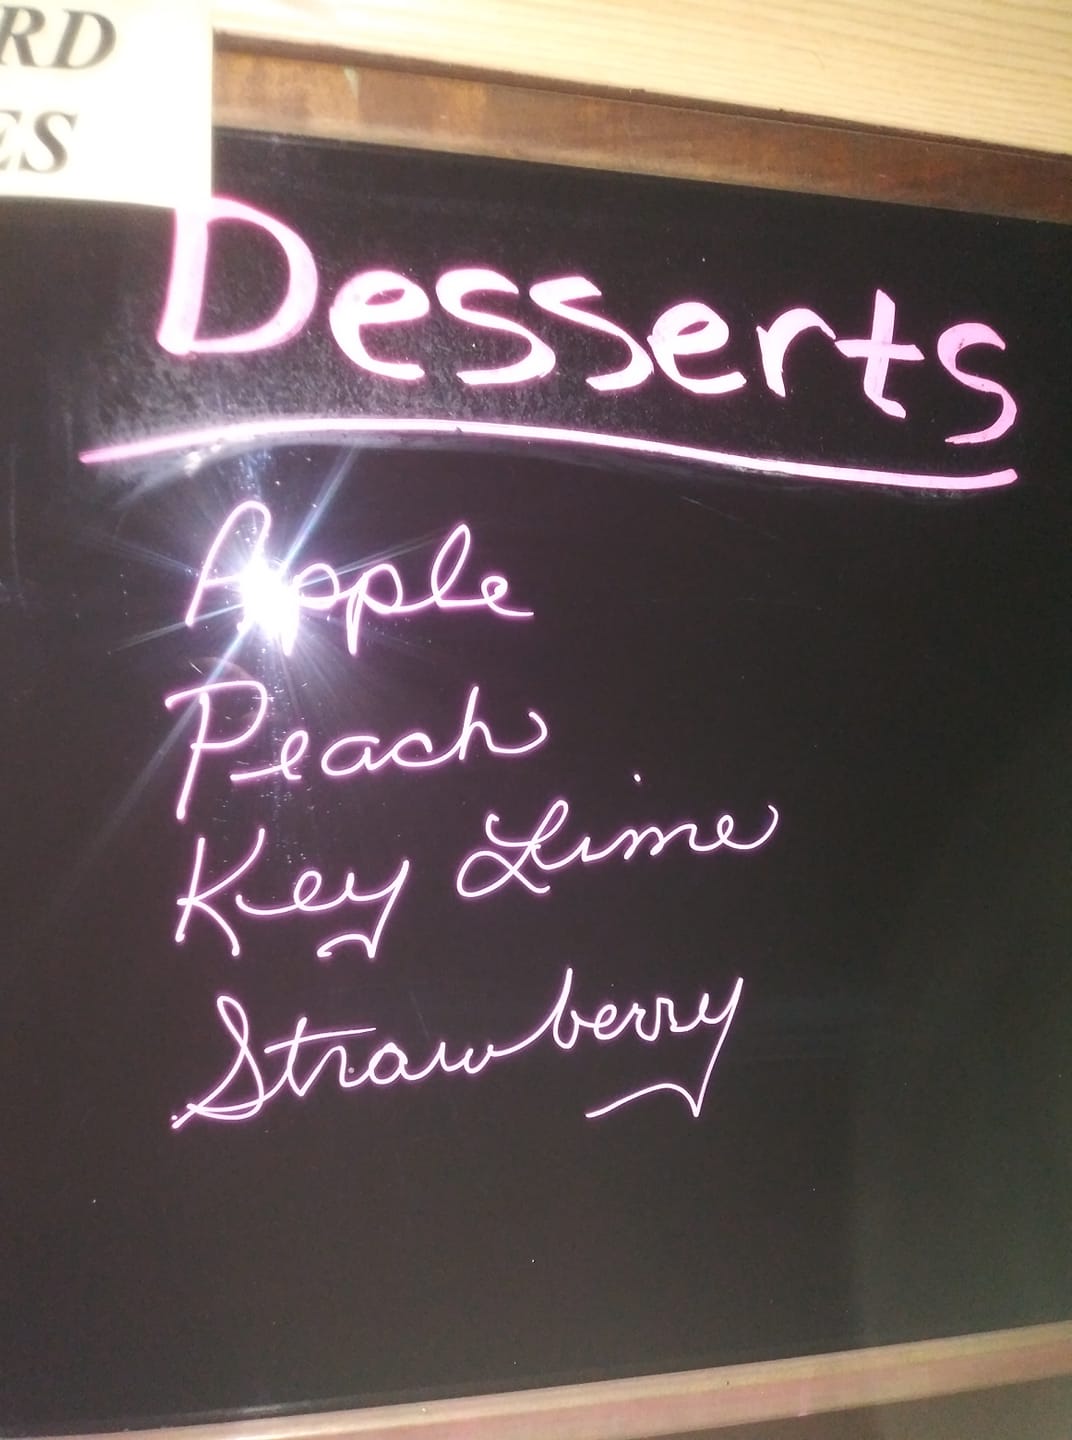 RD
ES
Desserts
Apple
Peach
Key Lime
Strawberry